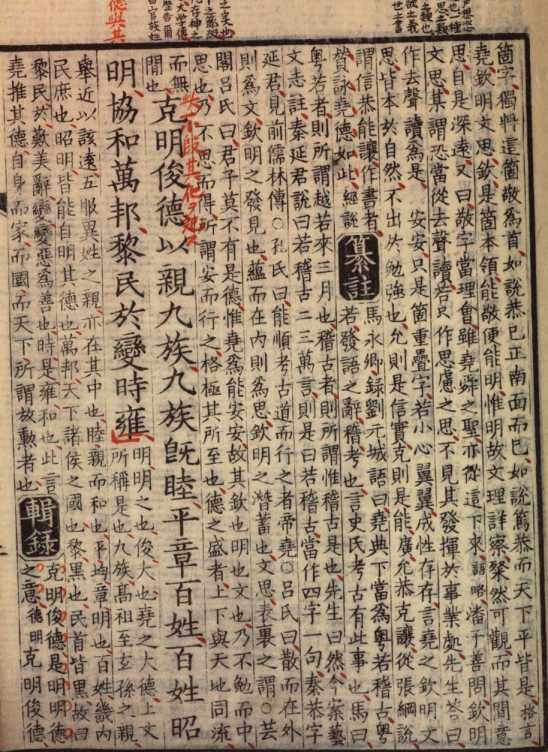 箇字獨將這箇敬為首如說恭己正南面而已如說篤恭而天下平皆是
堯欽明文思欽是箇本領能敬便能明惟明故文理詳察粲然可觀而其間意
思自是深遠又曰敬字當理會雖堯舜之聖亦從這下來 語略 潘子善問欽明
文思其謂恐當從去聲讀若只作思慮之思不見其發揮於事業處先生答曰
作去聲讀為是 安安只是箇重疊字若小心翼翼成性存存言堯之欽明文
思皆本於自然不出於勉強也允則是信實克則是能廣允恭克讓從張綱說
謂信恭能讓作書者
贊詠堯德如此 經說
纂註
馬永卿錄劉元城語曰堯典下當為粵若稽古粵
若發語之辭稽考也言史氏考古有此事也馬曰
粵若者則所謂越若來三月也稽古者則所謂惟稽古是也先生曰然今案藝
文志註秦延君說曰若稽古二三萬言則是曰若稽古當作四字一句秦恭字
延君則前儒林傳○孔氏曰能順考古道而行之者帝堯○呂氏曰散而在外
則為文欽明之發見也蘊而在內則為思欽明之濳蓄也文思表裏之謂○芸
閣呂氏曰君子莫不有是德惟堯為能安安故其欽也明也文也乃不勉而中
思也乃不思而得所謂安而行之格極其所至也德之盛者上下與天地同流
而無
間也
克明俊德以親九族九族旣睦平章百姓百姓昭
明協和萬邦黎民於變時雍
明明之也俊大也堯之大德上文
所稱是也九族高祖至玄孫之親
舉近以該遠五服異姓之親亦在其中也睦親而和也平均章明也百姓畿內
民庶也昭明皆能自明其德也萬邦天下諸侯之國也黎黑也民首皆黑故曰
黎民於歎美辭變變惡為善也時是雍和也此言
堯推其德自身而家而國而天下所謂放勳者也
輯錄
克明俊德是明明德
之意 德明 克明俊德